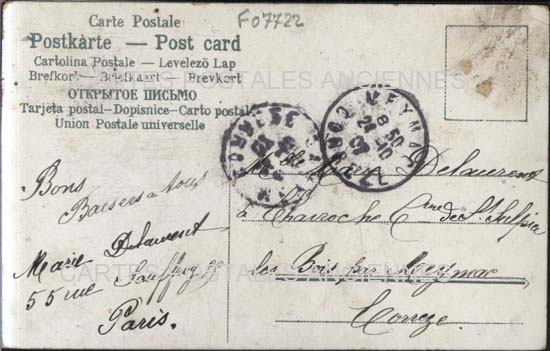 F07722
Carte Postale
Postkarte — Post card
Cartolina Postale — Levelező Lap
Brefkort — Briefkaart — Brevkort
ОТКРЫТОЕ ПИСЬМО
Tarjeta postal - Dopisnice - Carto postal
Union Postale universelle
CARTES POSTALES ANCIENNES
MEYMAC
8 50
24 - 10
CORREZE
Bons
Baisers à tous
Marie Delaurent
55 rue
Paris.
Marie Delaurent
à Charroche Cne de St Sulpice
les Bois par Meymac
Correze
CARTES POSTALES ANCIENNES